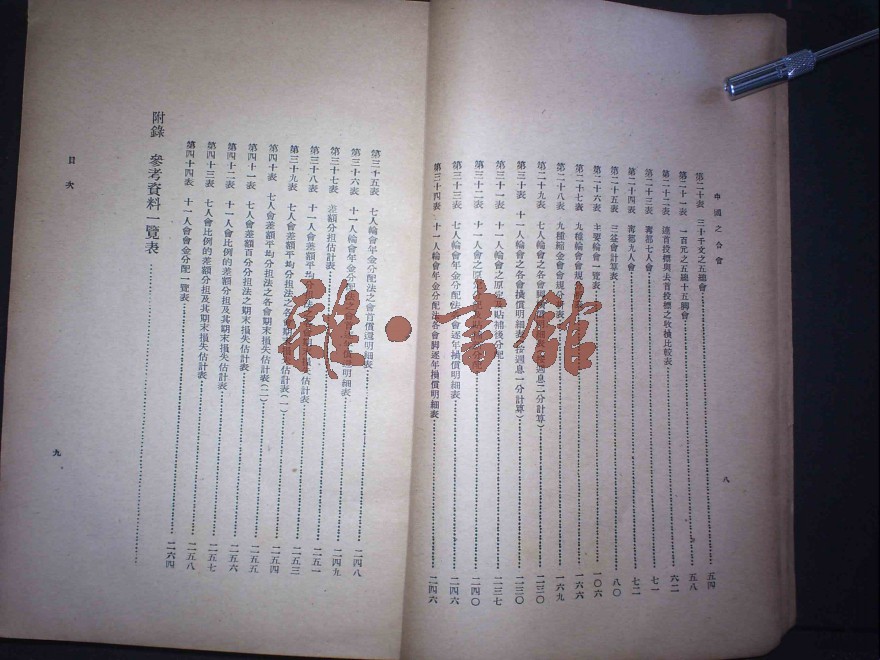 中國之合會
第二十表 三十千文之五總會 五四
第二十一表 一百元之五總十五腳會 五八
第二十二表 遠首投標與去首投標之收積比較表 六二
第二十三表 壽都七人會 七一
第二十四表 壽都九人會 七二
第二十五表 三益會計算表 八〇
第二十六表 主要輪會一覽表 一〇六
第二十七表 九種輪會會規 一六六
第二十八表 九種縮金會會規分 表 一六九
第二十九表 七人輪會之各會 償明細 週息二分計算） 二三〇
第三十表 十一人輪會之各會損償明細表（按週息一分計算） 二三〇
第三十一表 十一人輪會之原 貼補後分配 二三七
第三十二表 十一人會之原 二四〇
第三十三表 七人輪會年金分配法 會逐年損償明細表 二四六
第三十四表 十一人輪會年金分配法各會腳逐年損償明細表 二四六
八
第三十五表 七人輪會年金分配法之會首償還明細表 二四八
第三十六表 十一人輪會年金分配法 償明細表 二四九
第三十七表 差額分担估計表 二五一
第三十八表 十一人會差額平均分 會期 損失估計表 二五三
第三十九表 七人會差額平均分担法之各會期末損失估計表（一） 二五四
第四十表 七人會差額平均分担法之各會期末損失估計表（二） 二五五
第四十一表 七人會差額百分分担法之期末損失估計表 二五六
第四十二表 十一人會比例的差額分担及其期末損失估計表 二五七
第四十三表 七人會比例的差額分担及其期末損失估計表 二五八
第四十四表 十一人會會金分配一覽表 二六四
附錄 參考資料一覽表
目次
九
雜·書館